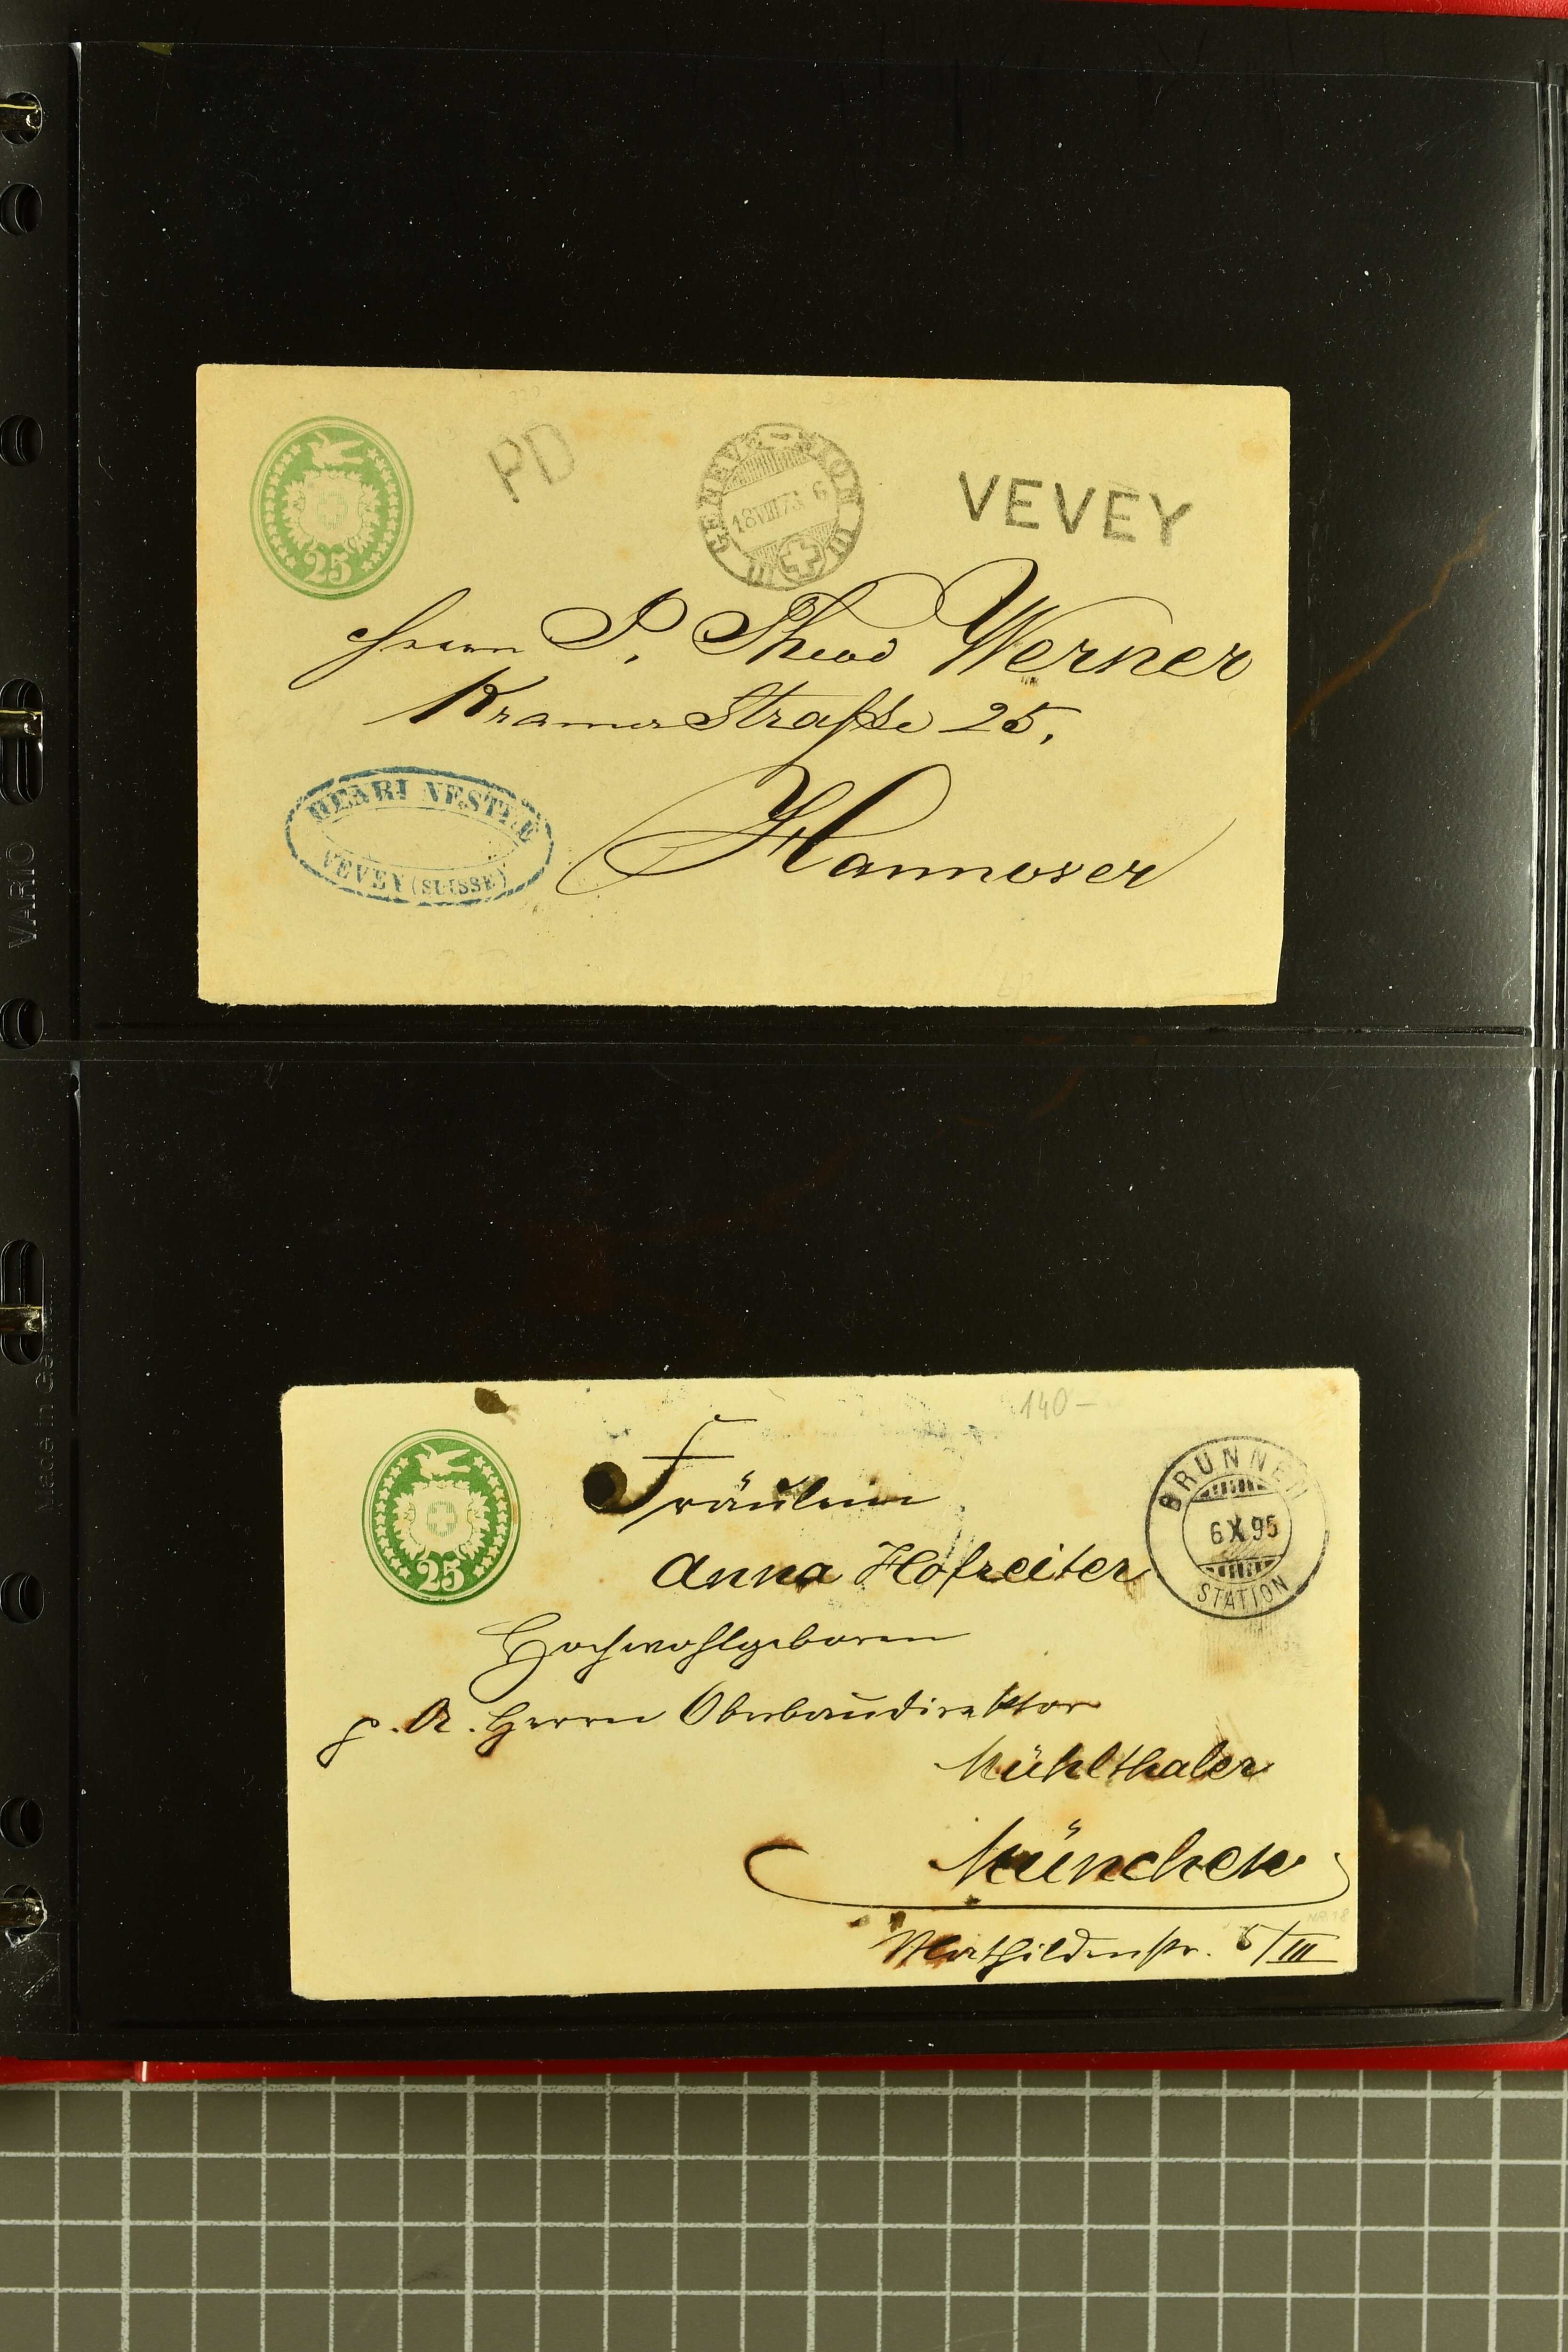 25
PD
GENEVE-SION
18 VIII 73 6
III III
VEVEY
Herrn P. Theod Werner
Kramer Strasse 25,
Hannover
HENRI NESTLÉ
VEVEY (SUISSE)
VARIO
140-
25
BRUNNEN
6 X 95
STATION
Fräulein
Anna Hofreiter
Hochwohlgeboren
p. A. Herrn Oberbaudirektor
Mühlthaler
München
NR. 18
Mathildenstr. 5/III
Made in Ge